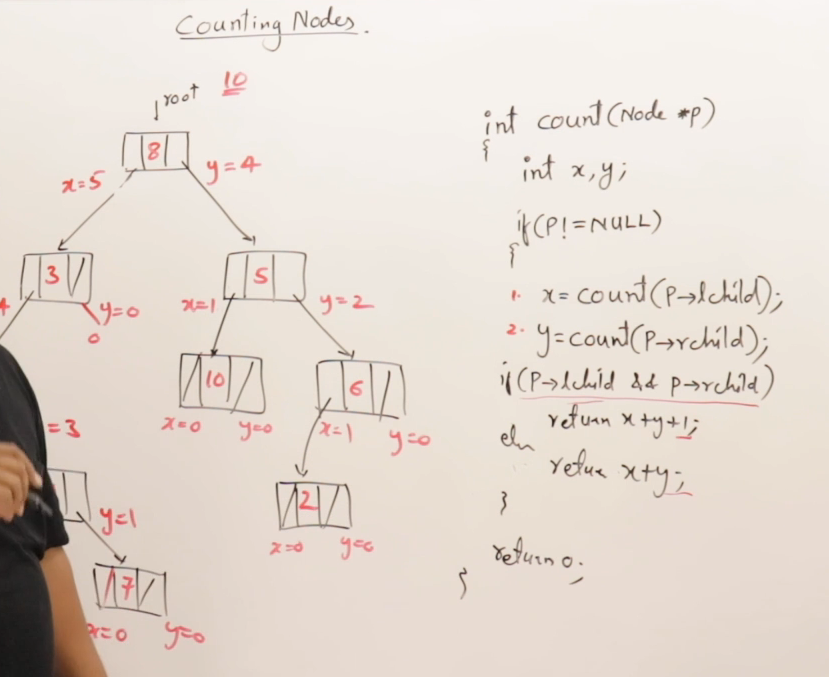 Counting Nodes.
root 10
8
x=5 y=4
3
5
4 y=0
0
x=1 y=2
10
6
x=0 y=0
x=1 y=0
=3
2
x=0
y=1
7
x=0 y=0
int count(Node *p)
{
int x,y;
if(P!=NULL)
{
1. x=count(P→lchild);
2. y=count(P→rchild);
if(P→lchild && p→rchild)
return x+y+1;
else
return x+y;
}
return 0;
}